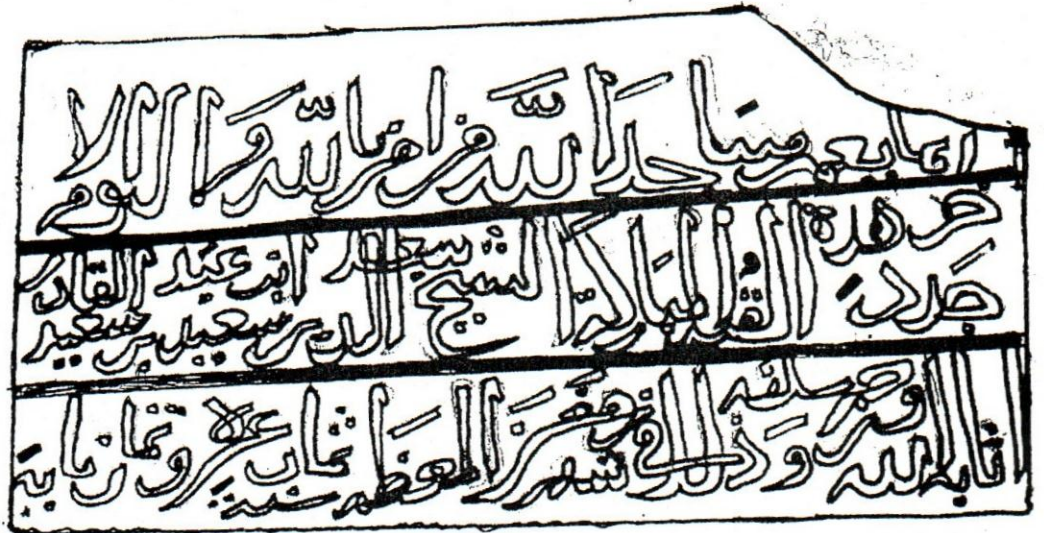 انما يعمر مساجد الله من امن بالله واليوم الا
خر جدد هذه القبة المباركة الشيخ سعد الدين ابن عبد القادر سعيد بن سعيد
اثابه الله وذلك في شهر رمضان المعظم سنة ثمان عشر وثمانماية